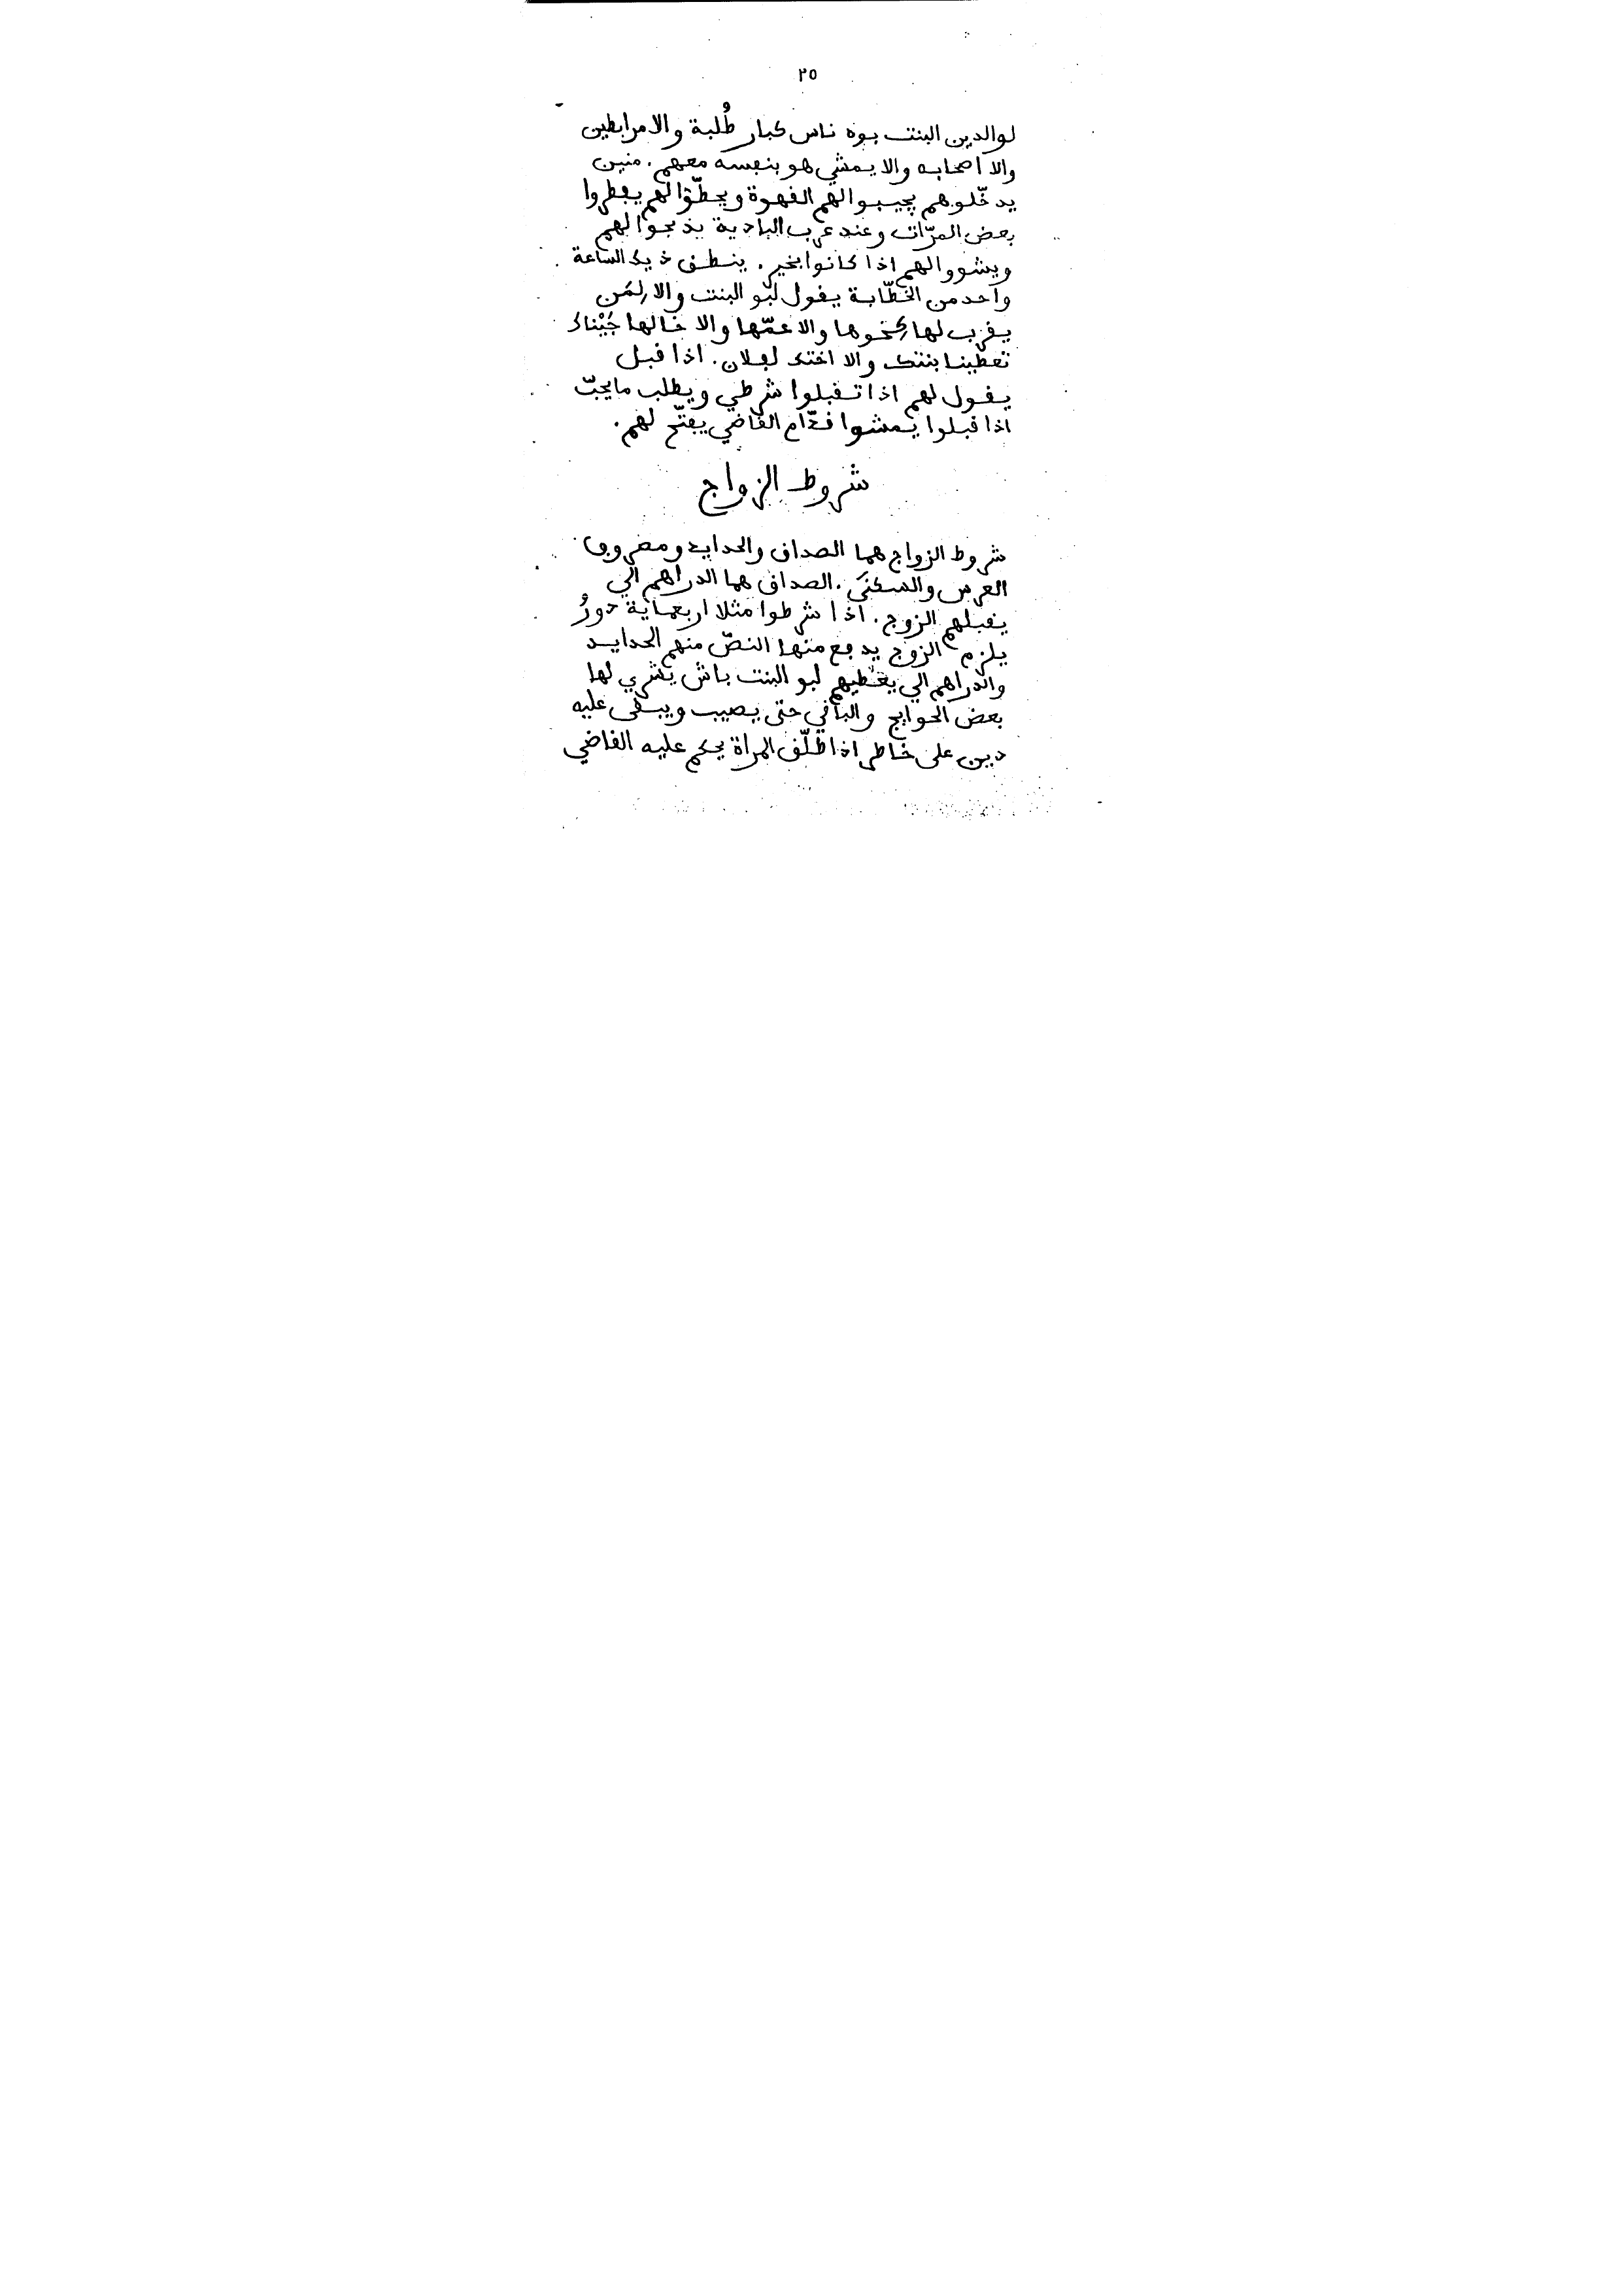 ٢٥
لوالدين البنت بوه ناس كبار طُلبة والا مرابطين
والا اصحابه والا يمشي هو بنفسه معهم. منين
يدخّلوهم يجيبوا لهم القهوة ويحطّوا لهم يفطروا
بعض المرّات وعند عرب البادية يذبحوا لهم
ويشووا لهم اذا كانوا بخير. ينطق ذيك الساعة
واحد من الخطّابة يقول لبو البنت والا لمَن
يقرب لها كخوها والا عمّها والا خالها جَيْناك
تعطينا بنتك والا اختك لفلان. اذا قبل
يقول لهم اذا تقبلوا شرطي ويطلب ما يحبّ
اذا قبلوا يمشوا قدّام القاضي يفتّح لهم.
شروط الزواج
شروط الزواج هما الصداق والحدايد ومصروف
العرس والسكنى. الصداق هما الدراهم الي
يقبلهم الزوج. اذا شرطوا مثلا اربعماية دورُ
يلزم الزوج يدفع منها النصّ منهم الحدايد
والدراهم الي يعطيهم لبو البنت باش يشري لها
بعض الحوايج والباقي حتى يصيب ويبقى عليه
دين على خاطر اذا طلّق المراة يحكم عليه القاضي